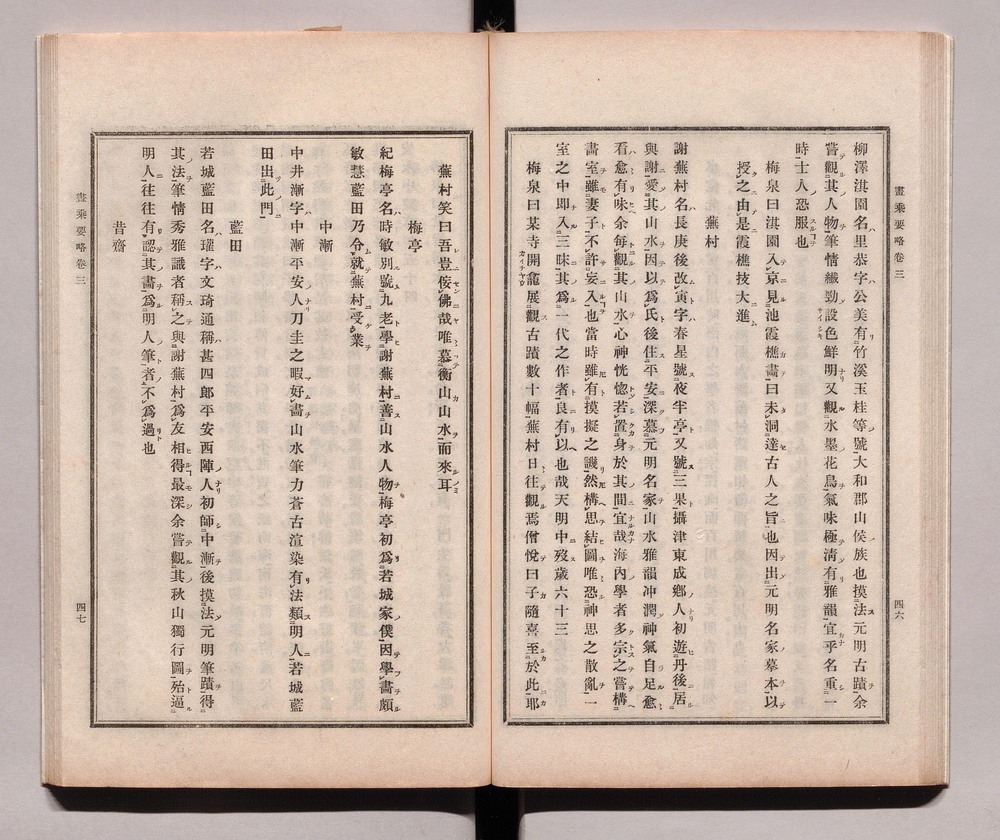 畫乘要略卷三
四六
柳澤淇園名里恭字公美有竹溪玉桂等號大和郡山侯族也摸法元明古蹟余
嘗觀其人物筆情纖勁設色鮮明又觀水墨花鳥氣味極淸有雅韻宜乎名重一
時士人恐服也
梅泉曰淇園入京見池霞樵畵曰未洞達古人之旨也因出元明名家摹本以
授之由是霞樵技大進
蕪村
謝蕪村名長庚後改寅字春星號夜半亭又號三果攝津東成鄕人初遊丹後居
與謝愛其山水因以爲氏後住平安深慕元明名家山水雅韻冲潤神氣自足愈
看愈有味余每觀其山水心神恍惚若置身於其間宜哉海內學者多宗之嘗構
畵室雖妻子不許妄入也當時雖有摸擬之譏然構思結圖唯恐神思之散亂一
室之中卽入三昧其爲一代之作者良有以也哉天明中歿歲六十三
梅泉曰某寺開龕展觀古蹟數十幅蕪村日往觀焉僧悅曰子隨喜至於此耶
蕪村笑曰吾豈侫佛哉唯慕衡山山水而來耳
梅亭
紀梅亭名時敏別號九老學謝蕪村善山水人物梅亭初爲若城家僕因學畵頗
敏慧藍田乃令就蕪村受業
中漸
中井漸字中漸平安人刀圭之暇好畵山水筆力蒼古渲染有法類明人若城藍
田出此門
藍田
若城藍田名瓘字文琦通稱甚四郎平安西陣人初師中漸後摸法元明筆蹟得
其法筆情秀雅識者稱之與謝蕪村爲友相得最深余嘗觀其秋山獨行圖殆逼
明人往往有認其畵爲明人筆者不爲過也
昔齋
畫乘要略卷三
四七